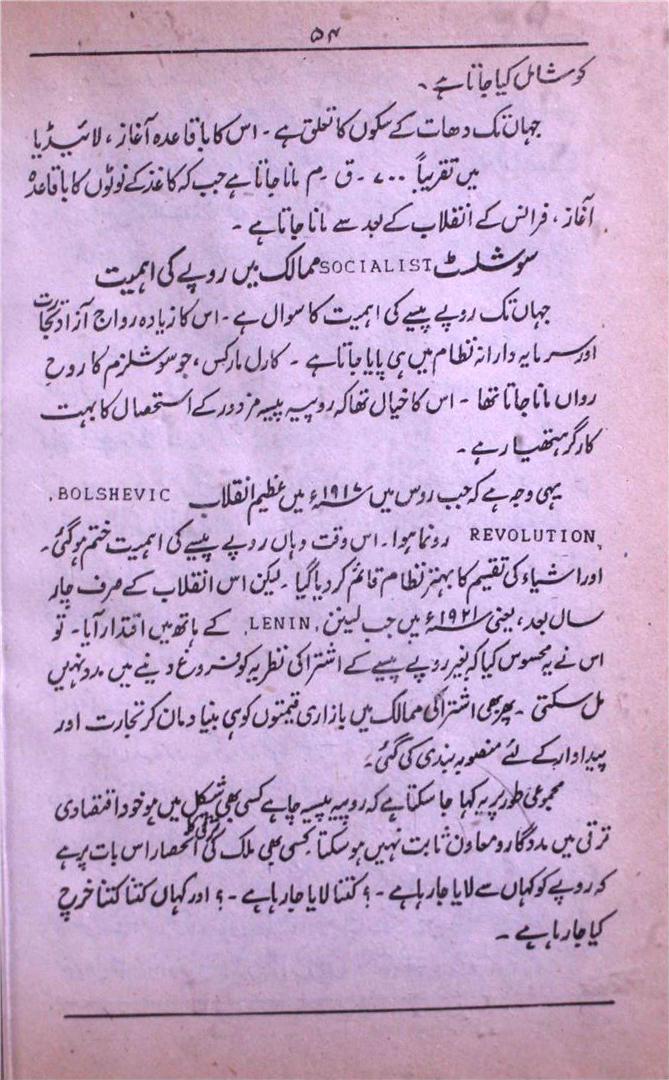 ۵۴
کو شامل کیا جاتا ہے۔
جہاں تک دھات کے سکوں کا تعلق ہے۔ اس کا باقاعدہ آغاز، لائیڈیا
میں تقریباً ۷۰۰ ق۔م مانا جاتا ہے جب کہ کاغذ کے نوٹوں کا باقاعدہ
آغاز، فرانس کے انقلاب کے بعد سے مانا جاتا ہے۔
سوشلسٹ SOCIALIST ممالک میں روپے کی اہمیت
جہاں تک روپے پیسے کی اہمیت کا سوال ہے۔ اس کا زیادہ رواج آزاد تجارت
اور سرمایہ دارانہ نظام میں ہی پایا جاتا ہے۔ کارل مارکس، جو سوشلزم کا روحِ
رواں مانا جاتا تھا۔ اس کا خیال تھا کہ روپیہ پیسہ مزدور کے استحصال کا بہت
کارگر ہتھیار ہے۔
یہی وجہ ہے کہ جب روس میں ۱۹۱۷ء میں عظیم انقلاب BOLSHEVIC
REVOLUTION رونما ہوا۔ اس وقت وہاں روپے پیسے کی اہمیت ختم ہو گئی۔
اور اشیاء کی تقسیم کا بہتر نظام قائم کر دیا گیا۔ لیکن اس انقلاب کے صرف چار
سال بعد، یعنی ۱۹۲۱ء میں جب لینن LENIN کے ہاتھ میں اقتدار آیا۔ تو
اس نے یہ محسوس کیا کہ بغیر روپے پیسے کے اشتراکی نظریہ کو فروغ دینے میں مدد نہیں
مل سکتی۔ پھر بھی اشتراکی ممالک میں بازاری قیمتوں کو ہی بنیاد مان کر تجارت اور
پیداوار کے لئے منصوبہ بندی کی گئی۔
مجموعی طور پر یہ کہا جا سکتا ہے کہ روپیہ پیسہ چاہے کسی بھی شکل میں ہو خود اقتصادی
ترقی میں مددگار و معاون ثابت نہیں ہو سکتا کسی بھی ملک کی ترقی کا انحصار اس بات پر ہے
کہ روپے کو کہاں سے لایا جا رہا ہے۔؟ کتنا لایا جا رہا ہے۔؟ اور کہاں کتنا کتنا خرچ
کیا جا رہا ہے۔